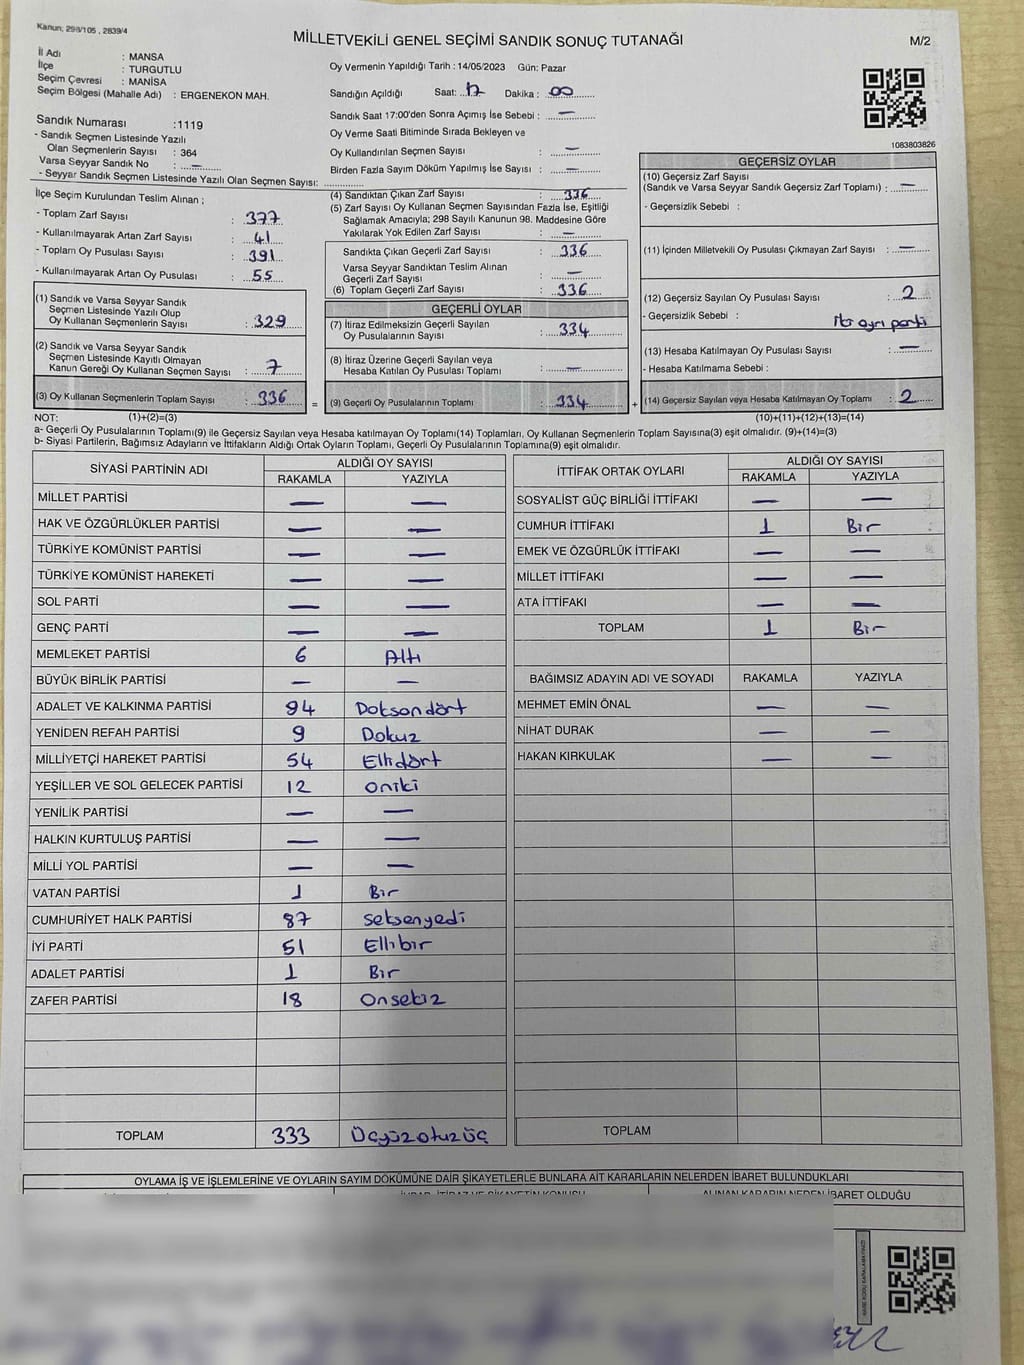 Kanun; 298/105 , 2839/4
MİLLETVEKİLİ GENEL SEÇİMİ SANDIK SONUÇ TUTANAĞI
M/2
İl Adı : MANSA
İlçe : TURGUTLU
Seçim Çevresi : MANİSA
Seçim Bölgesi (Mahalle Adı) : ERGENEKON MAH.
Sandık Numarası :1119
- Sandık Seçmen Listesinde Yazılı
Olan Seçmenlerin Sayısı : 364
Varsa Seyyar Sandık No : —
- Seyyar Sandık Seçmen Listesinde Yazılı Olan Seçmen Sayısı:
İlçe Seçim Kurulundan Teslim Alınan ;
- Toplam Zarf Sayısı : 377
- Kullanılmayarak Artan Zarf Sayısı : 41
- Toplam Oy Pusulası Sayısı : 391
- Kullanılmayarak Artan Oy Pusulası : 55
(1) Sandık ve Varsa Seyyar Sandık
Seçmen Listesinde Yazılı Olup
Oy Kullanan Seçmenlerin Sayısı : 329
(2) Sandık ve Varsa Seyyar Sandık
Seçmen Listesinde Kayıtlı Olmayan
Kanun Gereği Oy Kullanan Seçmen Sayısı : 7
(3) Oy Kullanan Seçmenlerin Toplam Sayısı : 336
Oy Vermenin Yapıldığı Tarih : 14/05/2023 Gün: Pazar
Sandığın Açıldığı Saat: 17 Dakika : 00
Sandık Saat 17:00'den Sonra Açımış İse Sebebi : —
Oy Verme Saati Bitiminde Sırada Bekleyen ve
Oy Kullandırılan Seçmen Sayısı : —
Birden Fazla Sayım Döküm Yapılmış İse Sayısı : —
(4) Sandıktan Çıkan Zarf Sayısı : 336
(5) Zarf Sayısı Oy Kullanan Seçmen Sayısından Fazla İse, Eşitliği
Sağlamak Amacıyla; 298 Sayılı Kanunun 98. Maddesine Göre
Yakılarak Yok Edilen Zarf Sayısı : —
Sandıkta Çıkan Geçerli Zarf Sayısı : 336
Varsa Seyyar Sandıktan Teslim Alınan
Geçerli Zarf Sayısı : —
(6) Toplam Geçerli Zarf Sayısı : 336
GEÇERLİ OYLAR
(7) İtiraz Edilmeksizin Geçerli Sayılan
Oy Pusulalarının Sayısı : 334
(8) İtiraz Üzerine Geçerli Sayılan veya
Hesaba Katılan Oy Pusulası Toplamı : —
= (9) Geçerli Oy Pusulalarının Toplamı : 334 +
1083803826
GEÇERSİZ OYLAR
(10) Geçersiz Zarf Sayısı
(Sandık ve Varsa Seyyar Sandık Geçersiz Zarf Toplamı) : —
- Geçersizlik Sebebi :
(11) İçinden Milletvekili Oy Pusulası Çıkmayan Zarf Sayısı : —
(12) Geçersiz Sayılan Oy Pusulası Sayısı : 2
- Geçersizlik Sebebi : iki ayrı parti
(13) Hesaba Katılmayan Oy Pusulası Sayısı : —
- Hesaba Katılmama Sebebi :
(14) Geçersiz Sayılan veya Hesaba Katılmayan Oy Toplamı : 2
NOT: (1)+(2)=(3) (10)+(11)+(12)+(13)=(14)
a- Geçerli Oy Pusulalarının Toplamı(9) ile Geçersiz Sayılan veya Hesaba katılmayan Oy Toplamı(14) Toplamları, Oy Kullanan Seçmenlerin Toplam Sayısına(3) eşit olmalıdır. (9)+(14)=(3)
b- Siyasi Partilerin, Bağımsız Adayların ve İttifakların Aldığı Ortak Oyların Toplamı, Geçerli Oy Pusulalarının Toplamına(9) eşit olmalıdır.
SİYASİ PARTİNİN ADI ALDIĞI OY SAYISI
RAKAMLA YAZIYLA
MİLLET PARTİSİ — —
HAK VE ÖZGÜRLÜKLER PARTİSİ — —
TÜRKİYE KOMÜNİST PARTİSİ — —
TÜRKİYE KOMÜNİST HAREKETİ — —
SOL PARTİ — —
GENÇ PARTİ — —
MEMLEKET PARTİSİ 6 Altı
BÜYÜK BİRLİK PARTİSİ — —
ADALET VE KALKINMA PARTİSİ 94 Doksandört
YENİDEN REFAH PARTİSİ 9 Dokuz
MİLLİYETÇİ HAREKET PARTİSİ 54 Ellidört
YEŞİLLER VE SOL GELECEK PARTİSİ 12 oniki
YENİLİK PARTİSİ — —
HALKIN KURTULUŞ PARTİSİ — —
MİLLİ YOL PARTİSİ — —
VATAN PARTİSİ 1 Bir
CUMHURİYET HALK PARTİSİ 87 seksenyedi
İYİ PARTİ 51 Ellibir
ADALET PARTİSİ 1 Bir
ZAFER PARTİSİ 18 Onsekiz
TOPLAM 333 Üçyüzotuzüç
İTTİFAK ORTAK OYLARI ALDIĞI OY SAYISI
RAKAMLA YAZIYLA
SOSYALİST GÜÇ BİRLİĞİ İTTİFAKI — —
CUMHUR İTTİFAKI 1 Bir
EMEK VE ÖZGÜRLÜK İTTİFAKI — —
MİLLET İTTİFAKI — —
ATA İTTİFAKI — —
TOPLAM 1 Bir
BAĞIMSIZ ADAYIN ADI VE SOYADI RAKAMLA YAZIYLA
MEHMET EMİN ÖNAL — —
NİHAT DURAK — —
HAKAN KIRKULAK — —
TOPLAM
OYLAMA İŞ VE İŞLEMLERİNE VE OYLARIN SAYIM DÖKÜMÜNE DAİR ŞİKAYETLERLE BUNLARA AİT KARARLARIN NELERDEN İBARET BULUNDUKLARI
İHBAR, İTİRAZ VE ŞİKAYETİN KONUSU ALINAN KARARIN NEDEN İBARET OLDUĞU